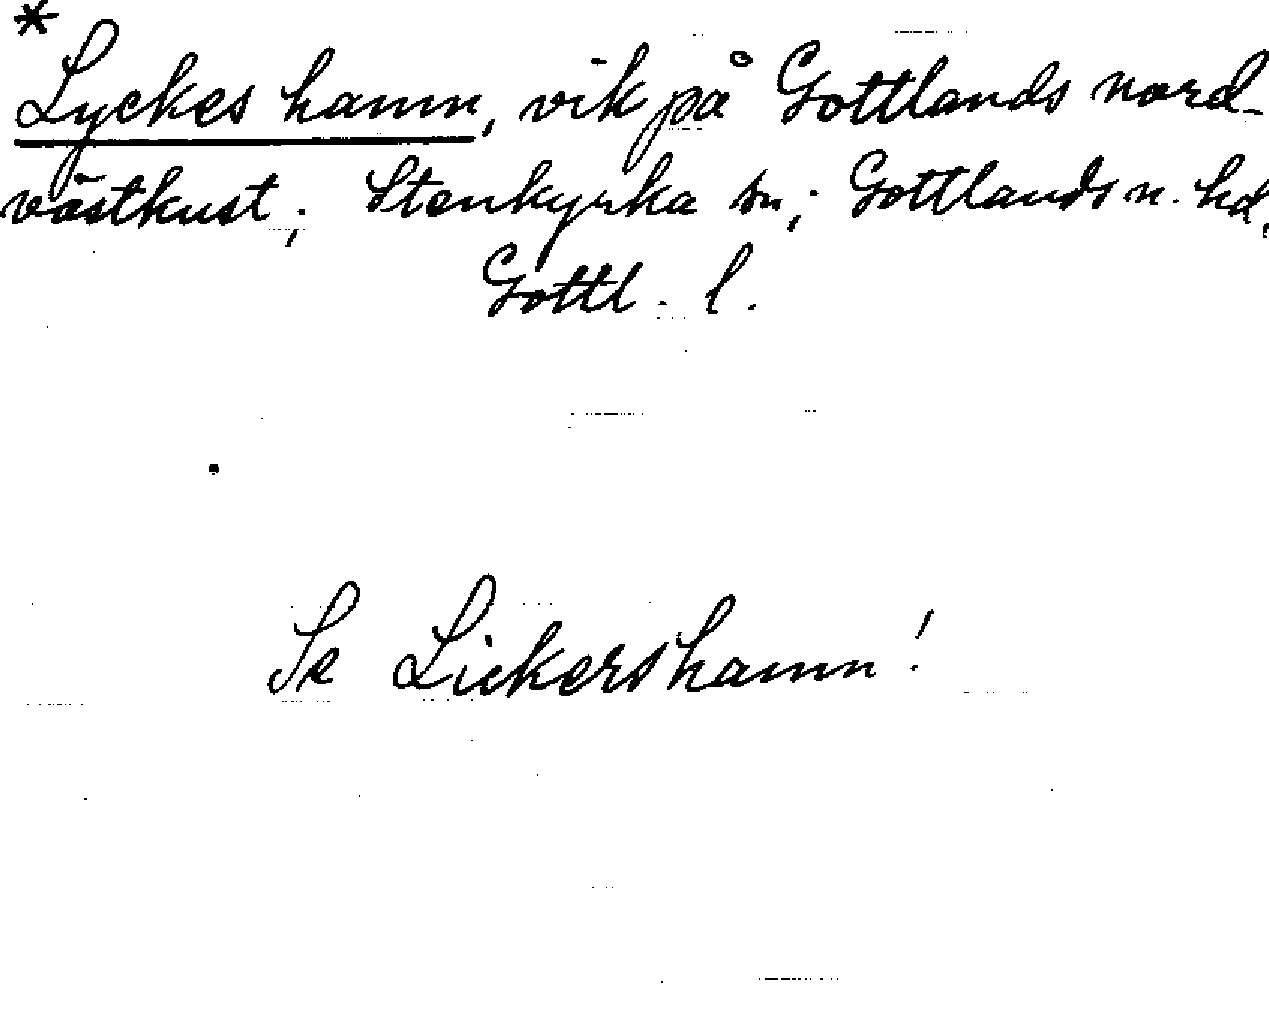 *
Lyckes hamn, vik på Gottlands nord-
västkust; Stenkyrka sn; Gottlands n. hd,
Gottl. l.
Se Lickershamn!